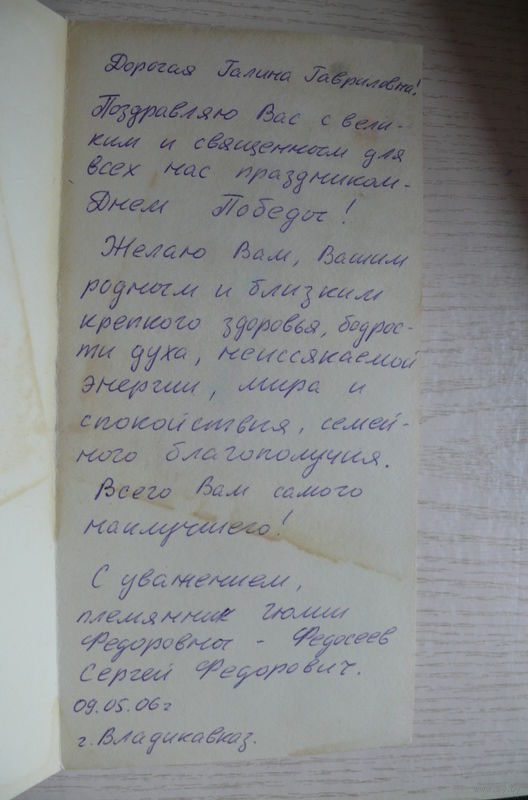 Дорогая Галина Гавриловна!
Поздравляю Вас с вели-
ким и священным для
всех нас праздником -
Днем Победы!
Желаю Вам, Вашим
родным и близким
крепкого здоровья, бодрос-
ти духа, неиссякаемой
энергии, мира и
спокойствия, семей-
ного благополучия.
Всего Вам самого
наилучшего!
С уважением,
племянник Юлии
Федоровны - Федосеев
Сергей Федорович.
09.05.06г
г. Владикавказ.